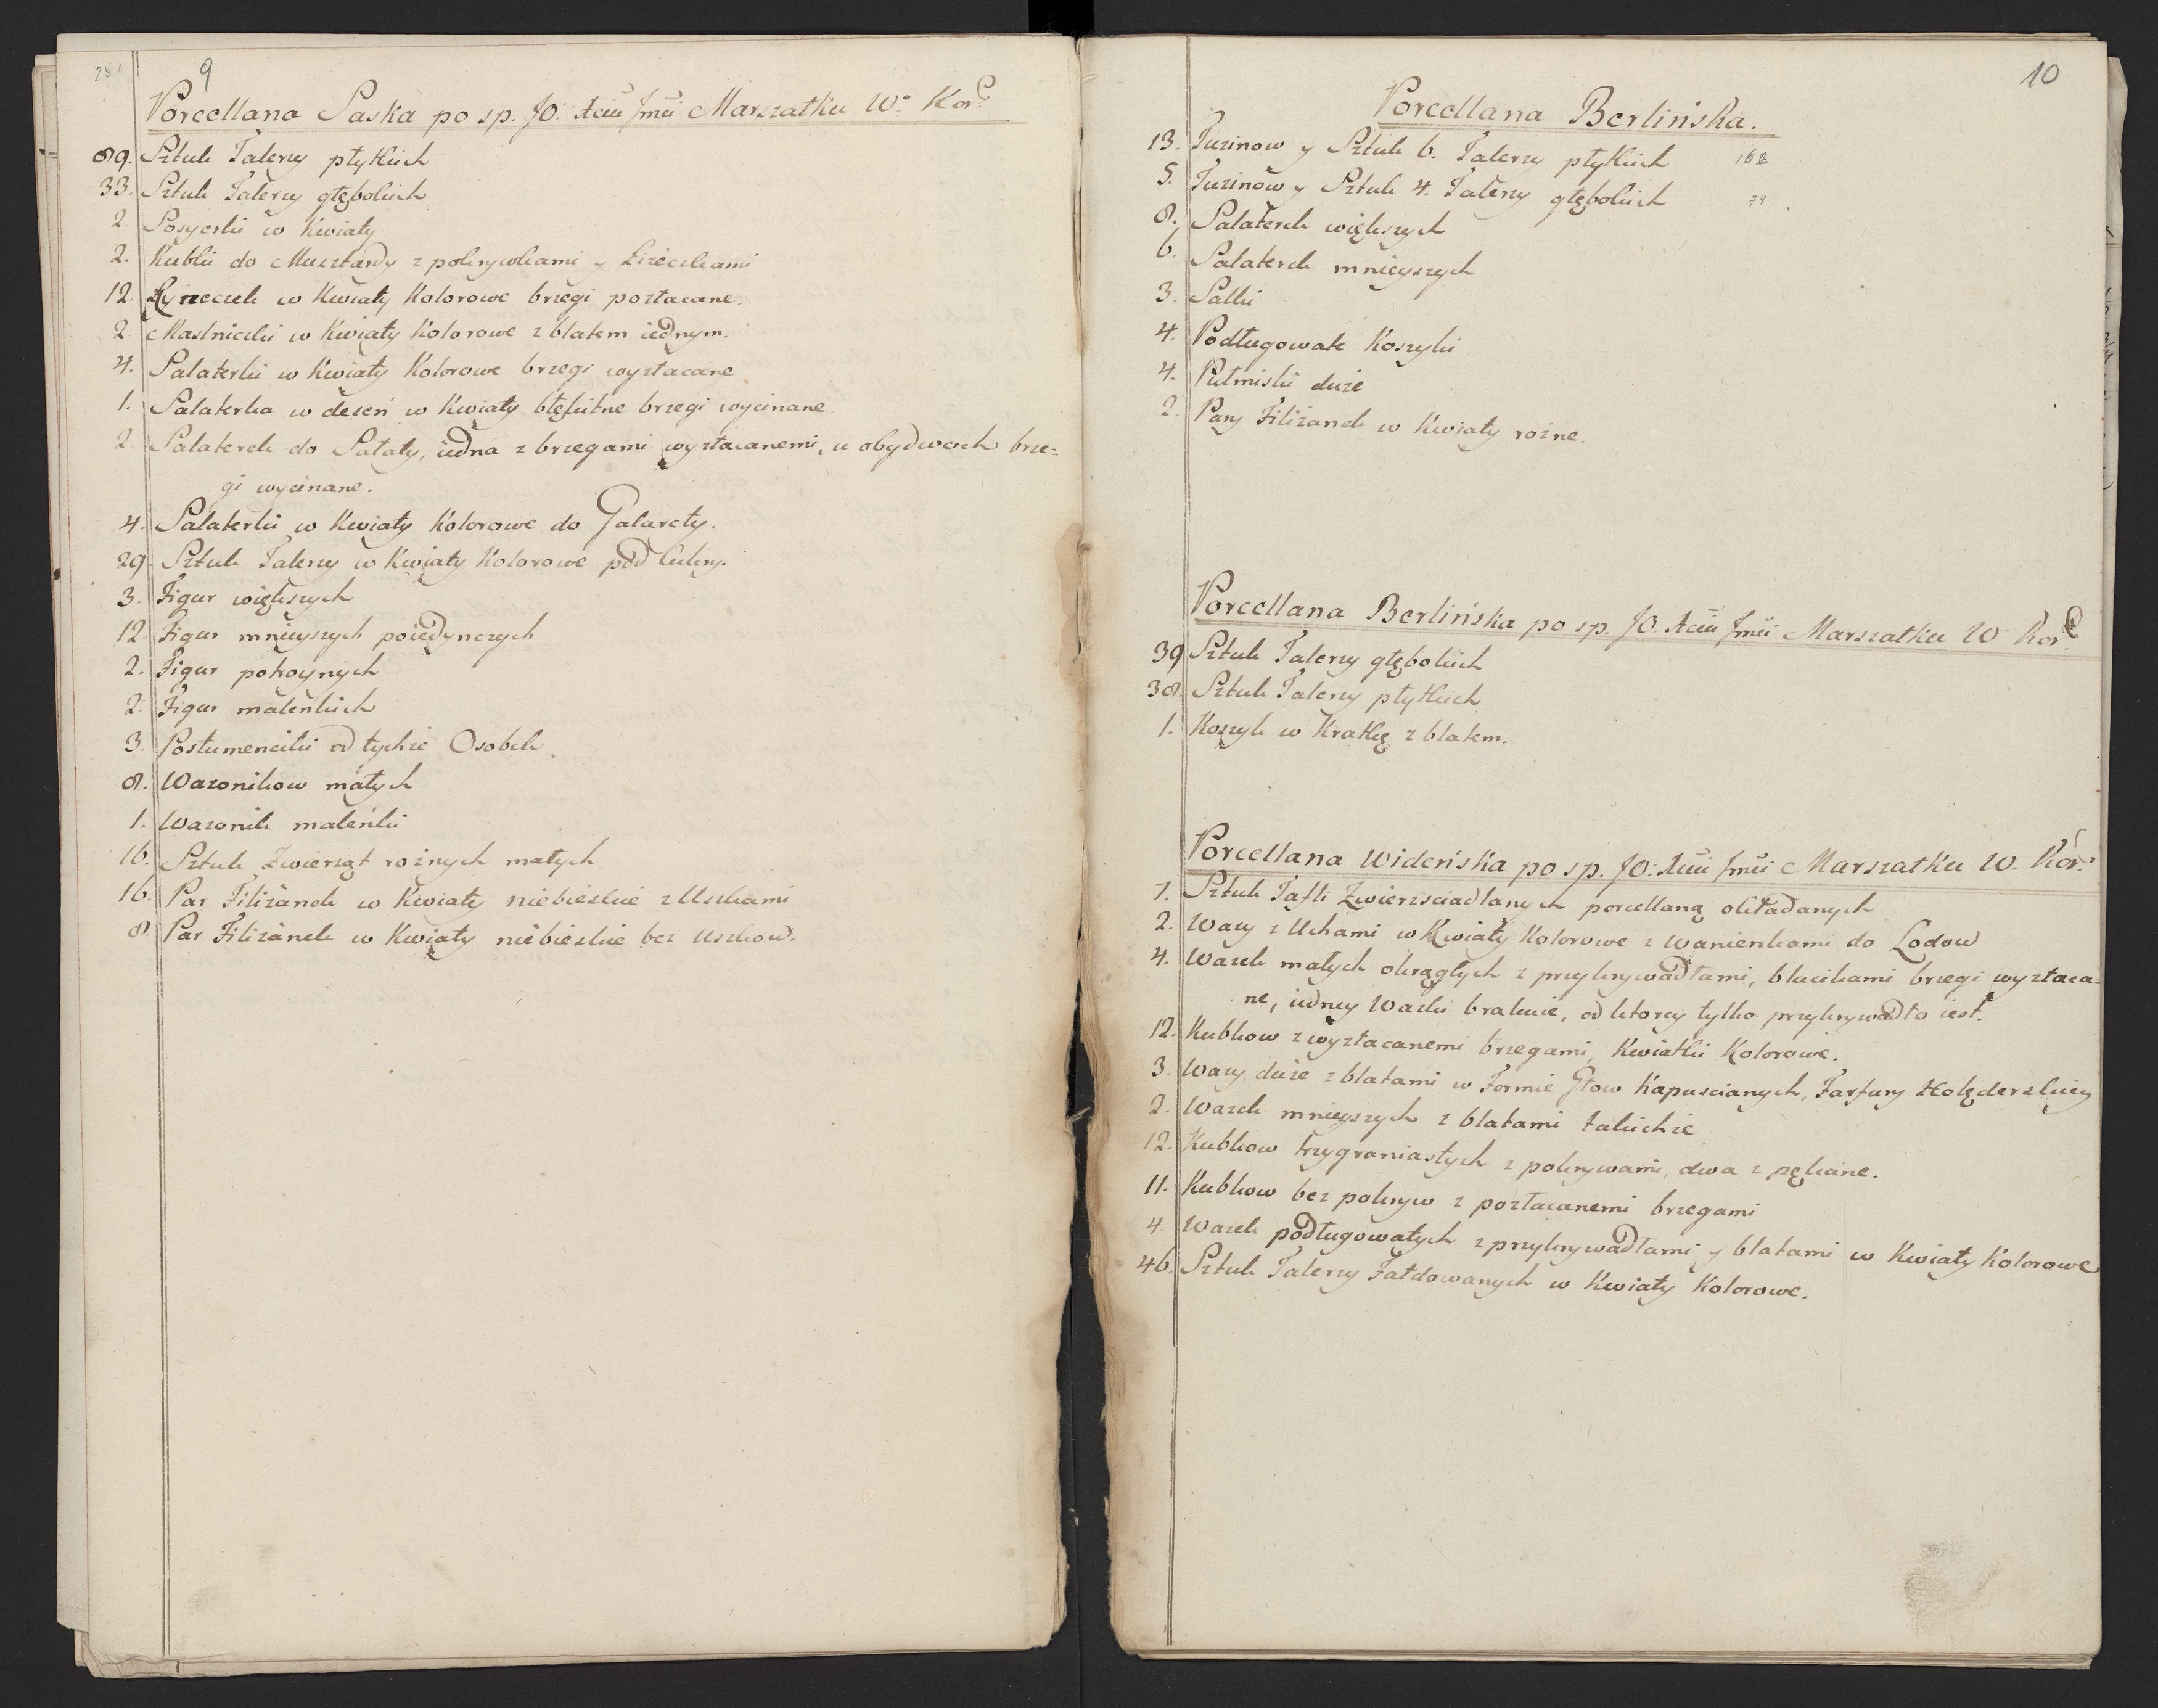 9
Porcellana Saska po sp. JO. Xciu Jmci Marszałku Wo Kor:
89. Sztuk Talerzy płytkich
33. Sztuk Talerzy głębokich
2. Sosyerki w Kwiaty
2. Kubki do Musztardy z pokrywkami y Lizeczkami
12. Łyzeczek w Kwiaty Kolorowe brzegi pozłacane.
2. Maslniczki w Kwiaty Kolorowe z blatem iednym.
4. Salaterki w Kwiaty Kolorowe brzegi wyzłacane
1. Salaterka w deseń w Kwiaty błękitne brzegi wycinane.
2. Salaterek do Sałaty, iedna z brzegami wyzłacanemi, u obydwoch brze=
gi wycinane.
4. Salaterki w Kwiaty Kolorowe do Galarety.
29. Sztuk Talerzy w Kwiaty Kolorowe pod Cukry.
3. Figur większych
12. Figur mnieyszych poiedynczych
2. Figur potroynych
2. Figur maleńkich
3. Postumenciki od tychże Osobek.
8. Wazonikow małych
1. Wazonik maleńki
16. Sztuk Zwierząt rożnych małych
16. Par Filiżanek w Kwiaty niebieskie z Uszkami
8. Par Filiżanek w Kwiaty niebieskie bez Uszkow.
10
Porcellana Berlińska.
13. Tuzinow y Sztuk 6. Talerzy płytkich 162
5. Tuzinow y Sztuk 4. Talerzy głębokich 74
8. Salaterek większych
6. Salaterek mnieyszych
3. Salki
4. Podługowate Koszyki
4. Pułmiski duże
2. Pary Filiżanek w Kwiaty rożne.
Porcellana Berlińska po sp. JO. Xciu Jmci Marszałku W Kor:
39 Sztuk Talerzy głębokich
38. Sztuk Talerzy płytkich
1. Koszyk w Kratkę z blatem.
Porcellana Wideńska po sp. JO: Xciu Jmci Marszałku W. Kor:
7. Sztuk Tafli Zwierściadlanych porcellaną okładanych
2. Wazy z Uchami w Kwiaty Kolorowe z Wanienkami do Lodow
4. Wazek małych okrągłych z przykrywadłami, blacikami brzegi wyzłaca=
ne, iedney Wazki brakuie, od ktorey tylko przykrywadło iest.
12. Kubkow z wyzłacanemi brzegami, Kwiatki Kolorowe.
3. Wazy duże z blatami w Formie Głow Kapuscianych, Farfury Holęderskiey
2. Wazek mnieyszych z blatami takichże
12. Kubkow trzygraniastych z pokrywami, dwa z pękane.
11. Kubkow bez pokryw z pozłacanemi brzegami
4. Wazek podługowatych z przykrywadłami y blatami w Kwiaty Kolorowe
46. Sztuk Talerzy Fałdowanych w Kwiaty Kolorowe.